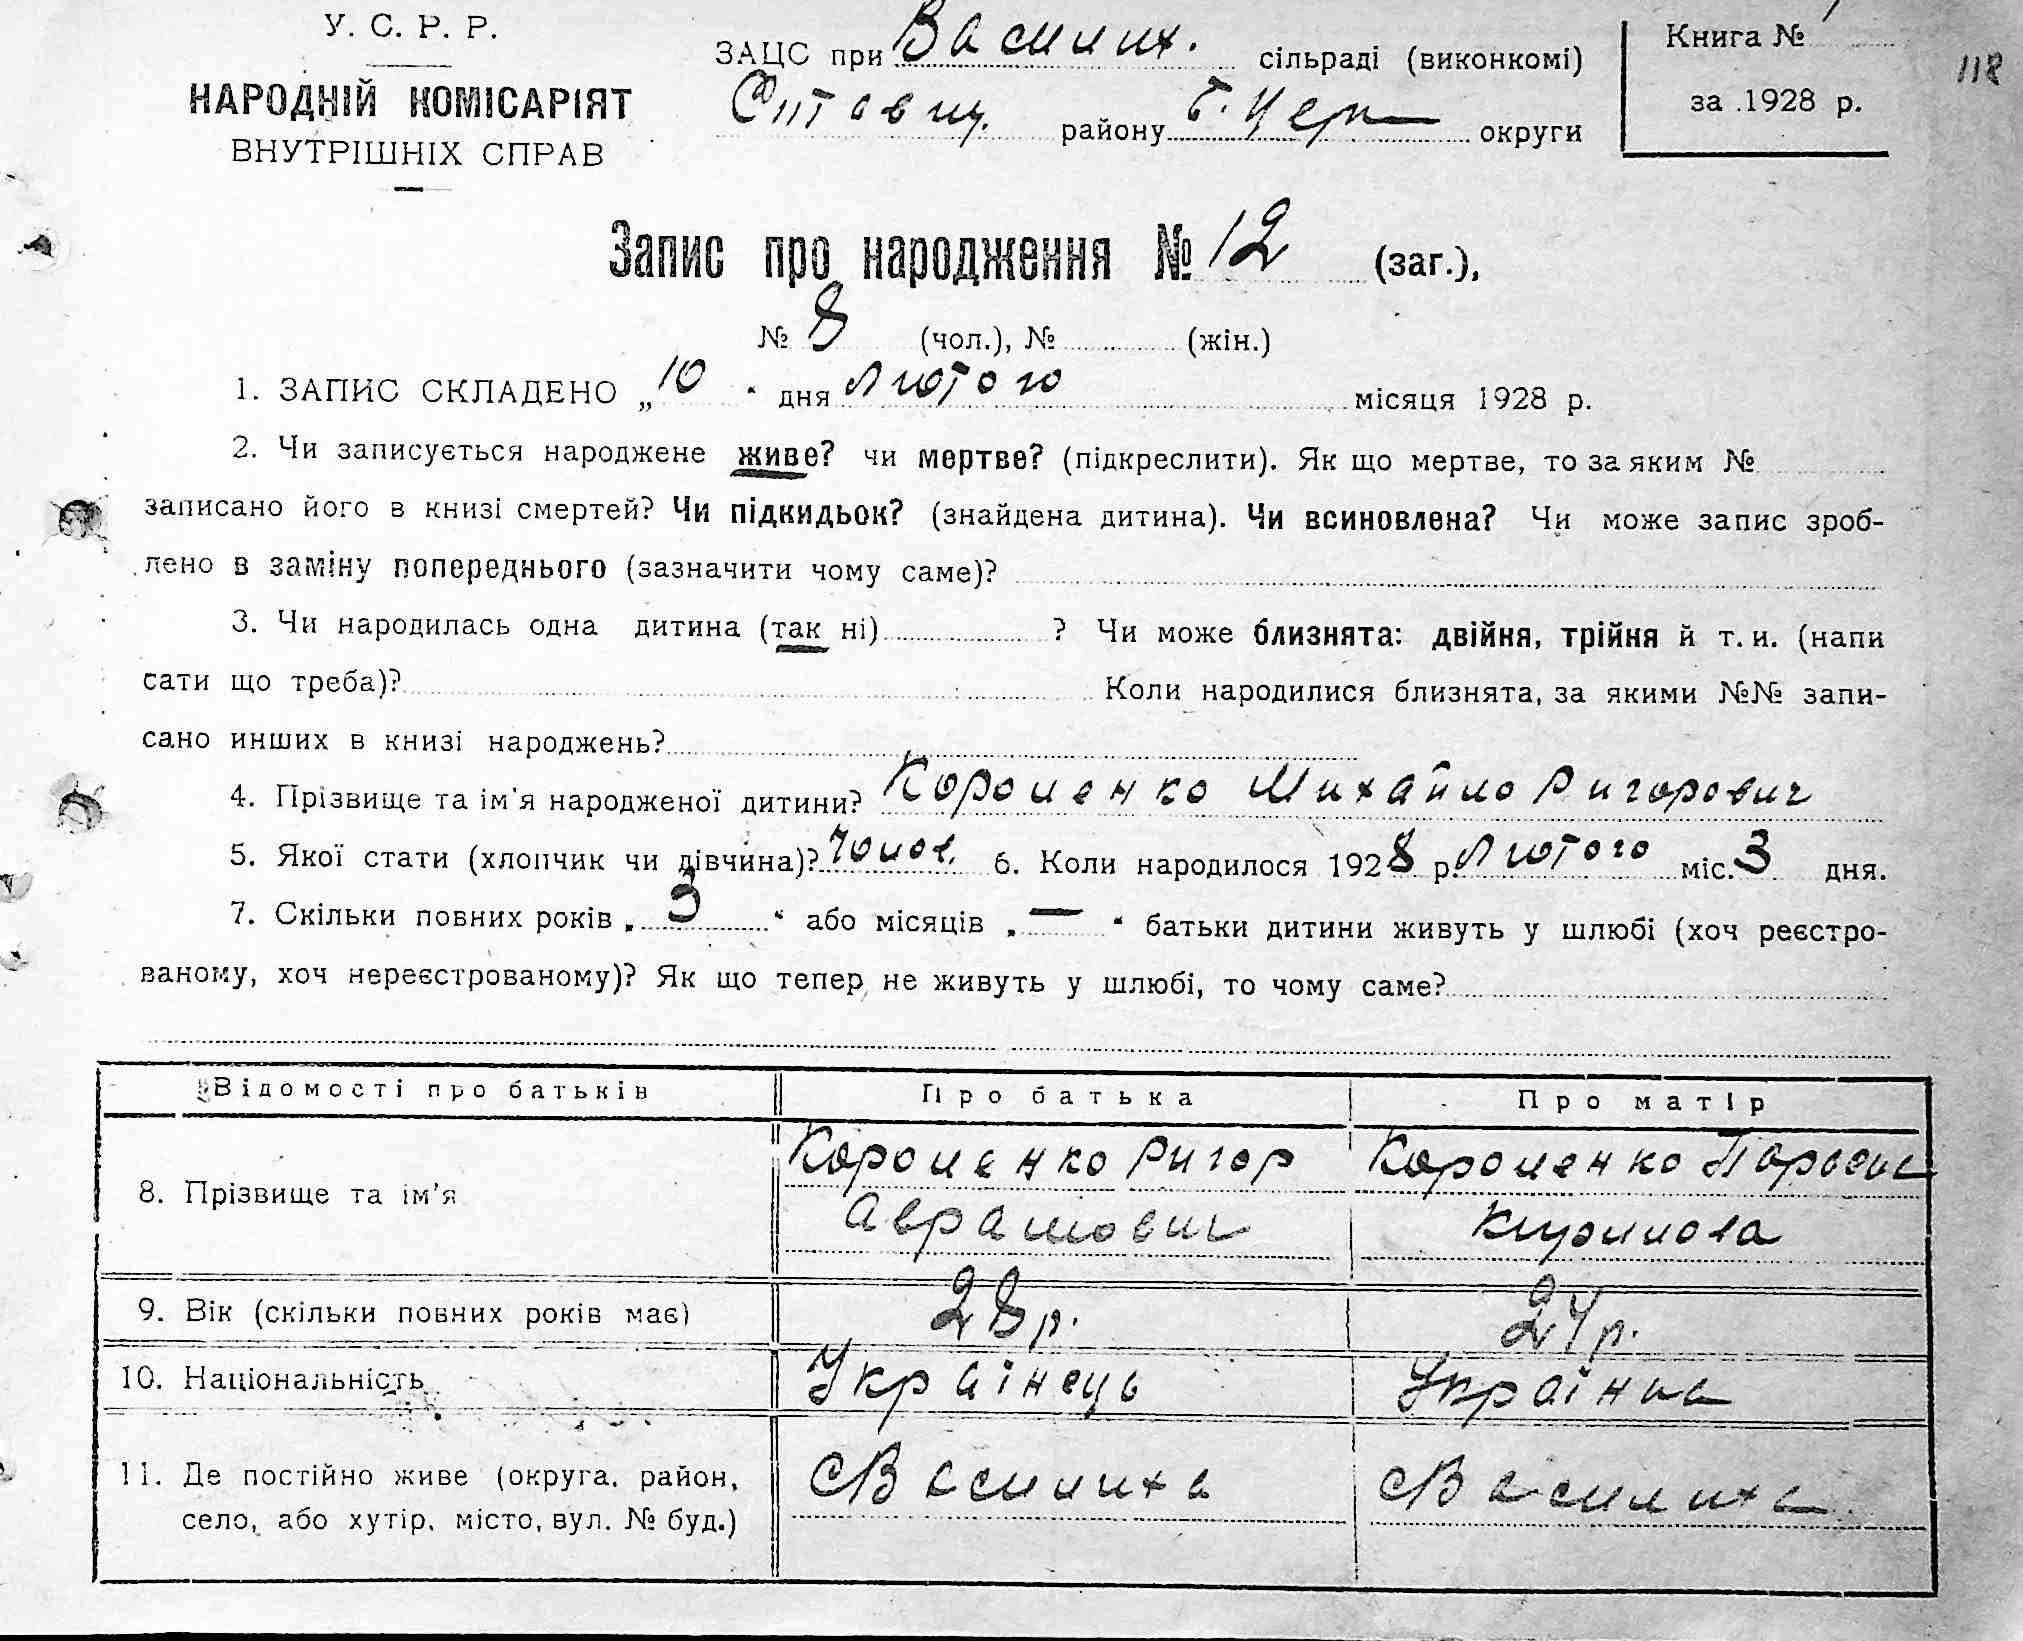 У. С. Р. Р.
НАРОДНІЙ КОМІСАРІЯТ
ВНУТРІШНІХ СПРАВ
ЗАЦС при Василих. сільраді (виконкомі)
району Б. Церк округи
Книга №
за 1928 р.
118
Запис про народження № 12 (заг.),
№ 8 (чол.), № (жін.)
1. ЗАПИС СКЛАДЕНО „10“ дня Лютого місяця 1928 р.
2. Чи записується народжене живе? чи мертве? (підкреслити). Як що мертве, то за яким №
записано його в книзі смертей? Чи підкидьок? (знайдена дитина). Чи всиновлена? Чи може запис зроб-
лено в заміну попереднього (зазначити чому саме)?
3. Чи народилась одна дитина (так ні) ? Чи може близнята: двійня, трійня й т. и. (напи
сати що треба)? Коли народилися близнята, за якими №№ запи-
сано инших в книзі народжень?
4. Прізвище та ім'я народженої дитини? Короленко Михайло Ригорович
5. Якої стати (хлопчик чи дівчина)? Чолов. 6. Коли народилося 1928 р. Лютого міс. 3 дня.
7. Скільки повних років „3“ або місяців „—“ батьки дитини живуть у шлюбі (хоч реєстро-
ваному, хоч нереєстрованому)? Як що тепер не живуть у шлюбі, то чому саме?
Відомості про батьків Про батька Про матір
8. Прізвище та ім'я Короленко Ригор Короленко
Аврамович Кирилова
9. Вік (скільки повних років має) 28 р. 24 р.
10. Національність Українець Українка
11. Де постійно живе (округа, район, с Василиха с Василиха
село, або хутір, місто, вул. № буд.)